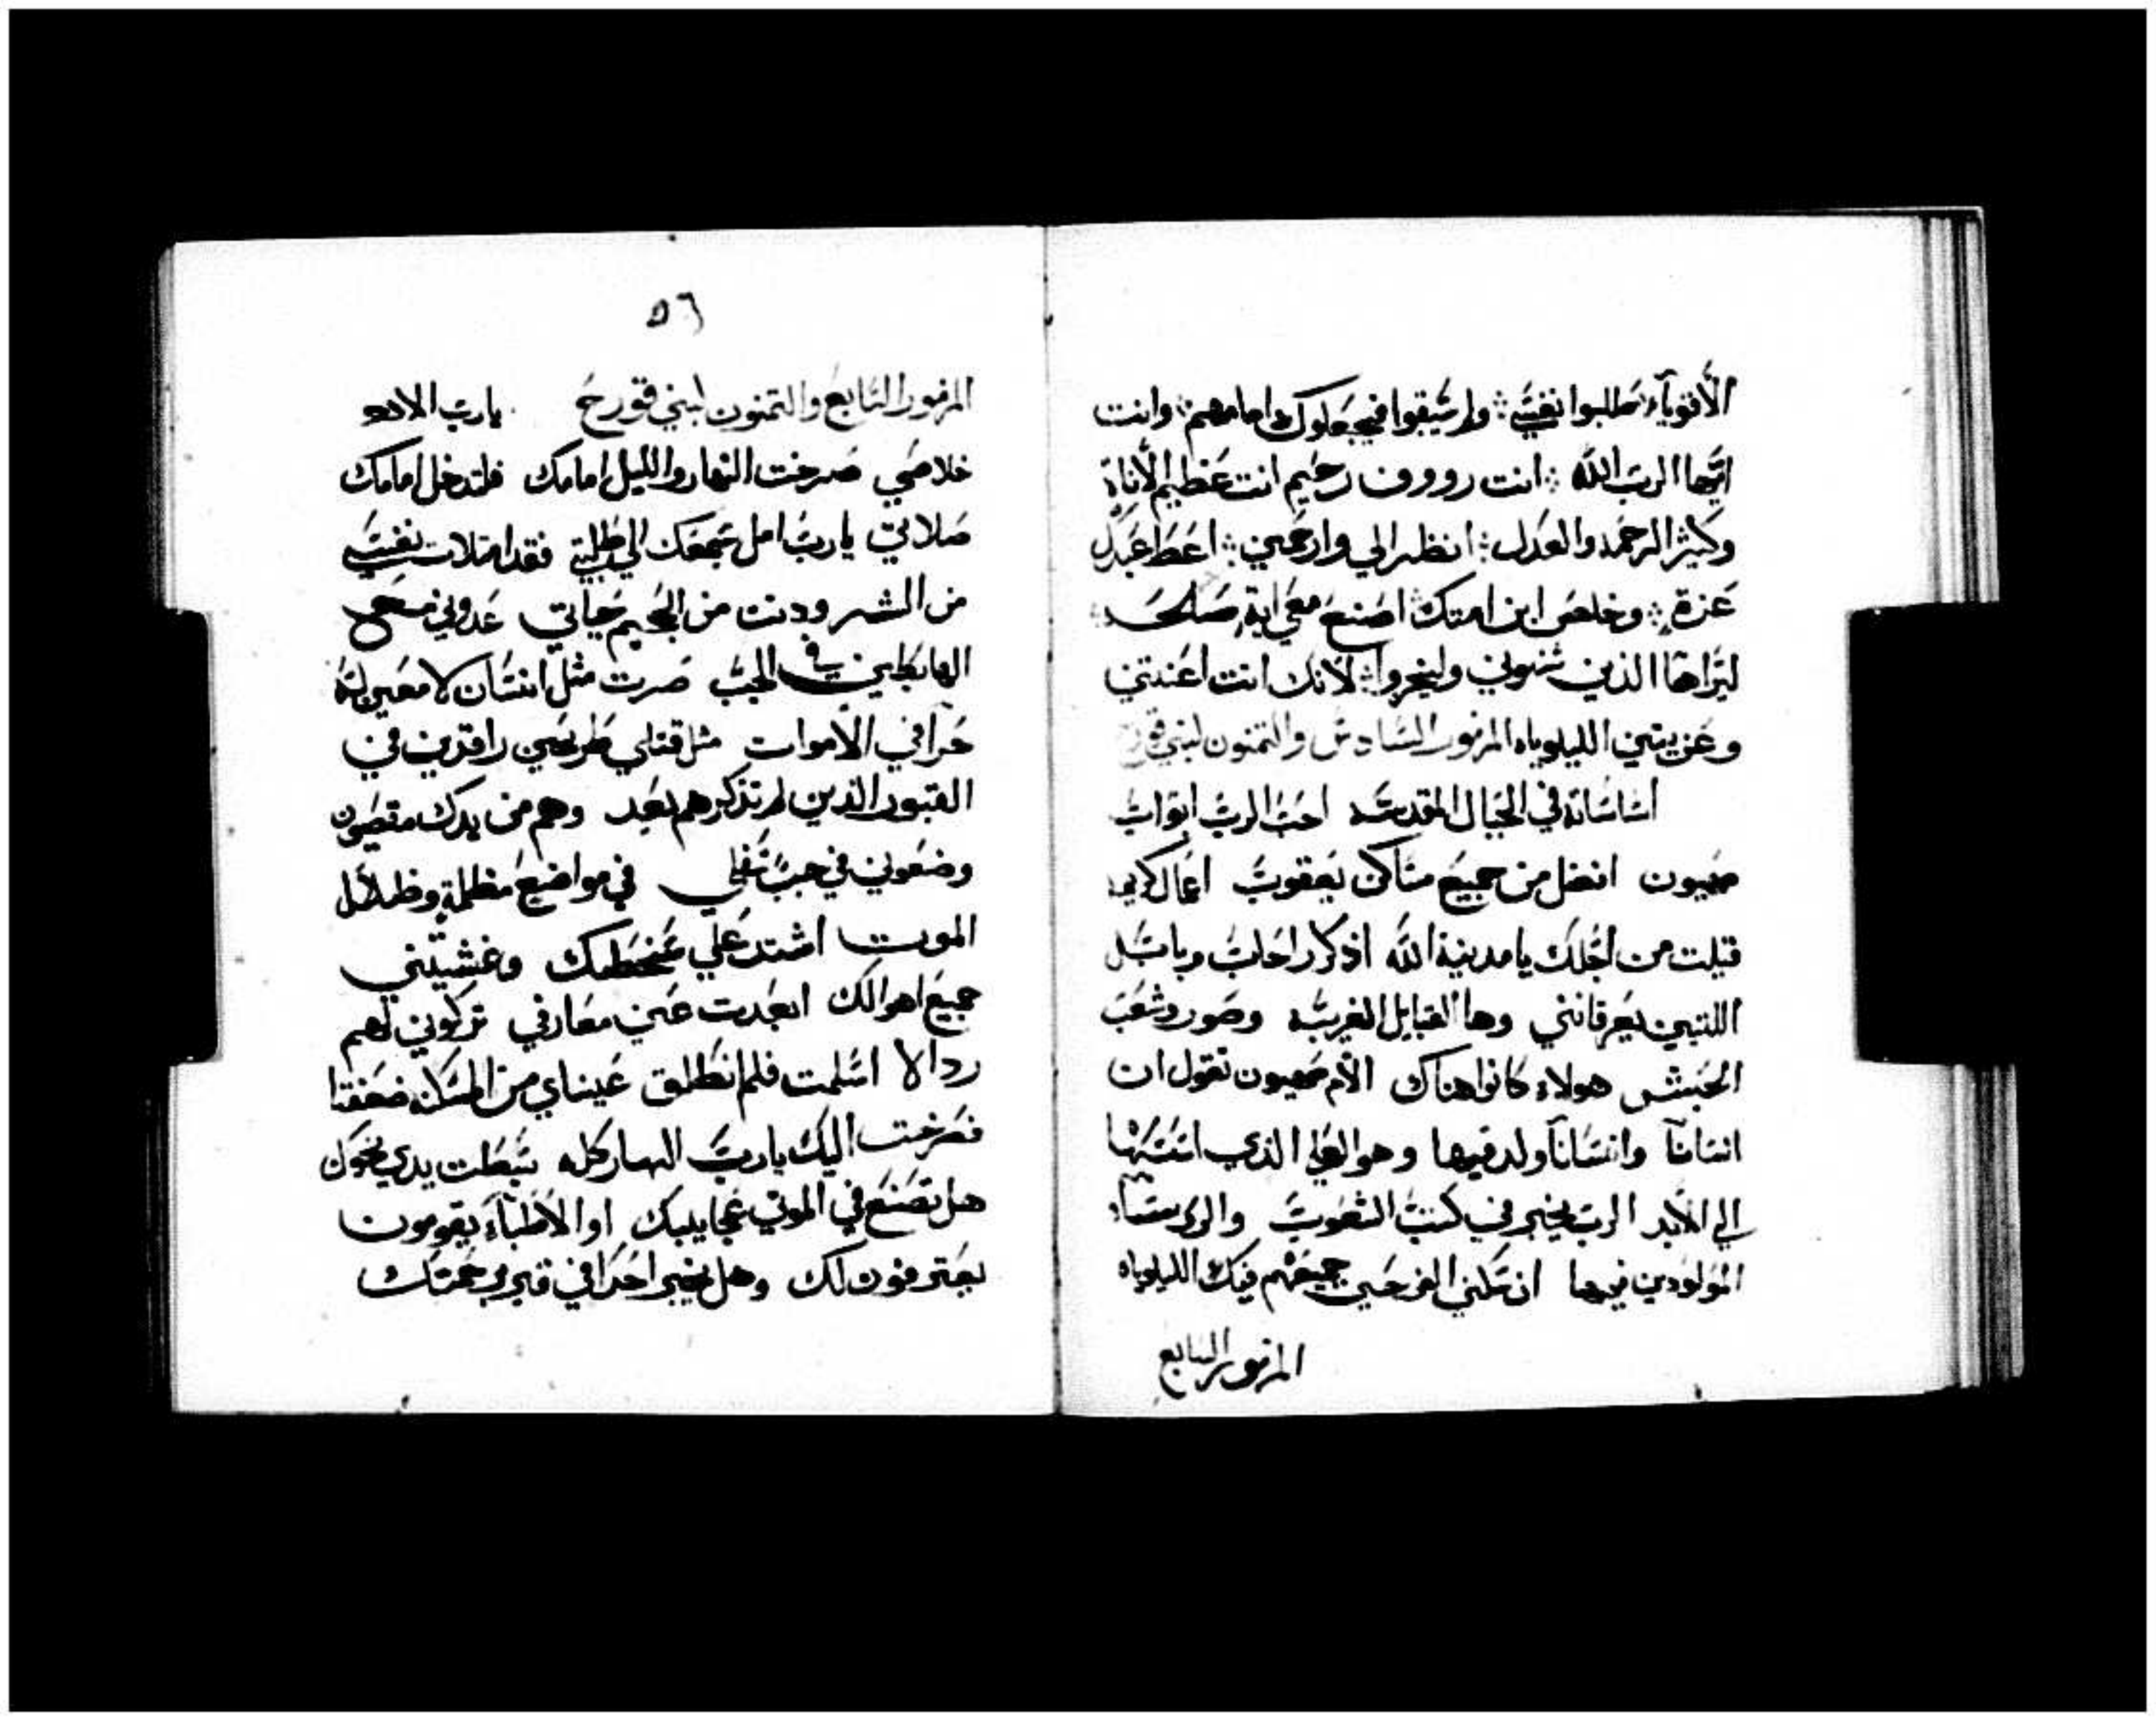 الأقوياء طلبوا نفسي ولم يسبقوا فيجعلوك امامهم وانت
ايها الرب الله انت رووف رحيم انت عظيم الأناة
وكثير الرحمه والعدل انظر الي وارحمني اعط عبدك
عزة وخلص ابن امتك اصنع معي اية صالحه
ليراها الذين شنوني وليخزوا لأنك انت اعنتني
وعزيتني الليلوياه المزمور السادس والثمنون لبني قورح
اساساته في الجبال المقدسه احب الرب ابواب
صهيون افضل من جميع مساكن يعقوب اعمال كريمه
قيلت من اجلك يا مدينة الله اذكر راحاب وبابل
اللتين يعرفانني وها القبايل الغريبه وصور وشعب
الحبش هولاء كانوا هناك الأم صهيون تقول ان
انسانا وانسانا ولد فيها وهو العلي الذي اسسها
الي الأبد الرب يخبر في كتب الشعوب والروسا
المولودين فيها ان سكني الفرحين جميعهم فيك الليلوياه
المزمور السابع
٥٦
المزمور السابع والثمنون لبني قورح يا رب الاه
خلاصي صرخت النهار والليل امامك فلتدخل امامك
صلاتي يا رب امل سمعك الي طلبتي فقد امتلات نفسي
من الشرور ودنت من الجحيم حياتي عدوني مع
الهابطين في الجب صرت مثل انسان لا معين له
حرا في الأموات مثل قتلي طريحين راقدين في
القبور الذين لم تذكرهم بعد وهم من يدك مقصون
وضعوني في جب سفلي في مواضع مظلمة وظلال
الموت اشتد علي سخطك وغشيتني
جميع اهوالك ابعدت عني معارفي تركوني لهم
ردالا اسلمت فلم انطلق عيناي من المسكنه ضعفتا
فصرخت اليك يا رب النهار كله بسطت يدي نحوك
هل تصنع في الموتي عجايبك او الأطباء يقومون
يعترفون لك وهل يخبر احدا في قبر برحمتك